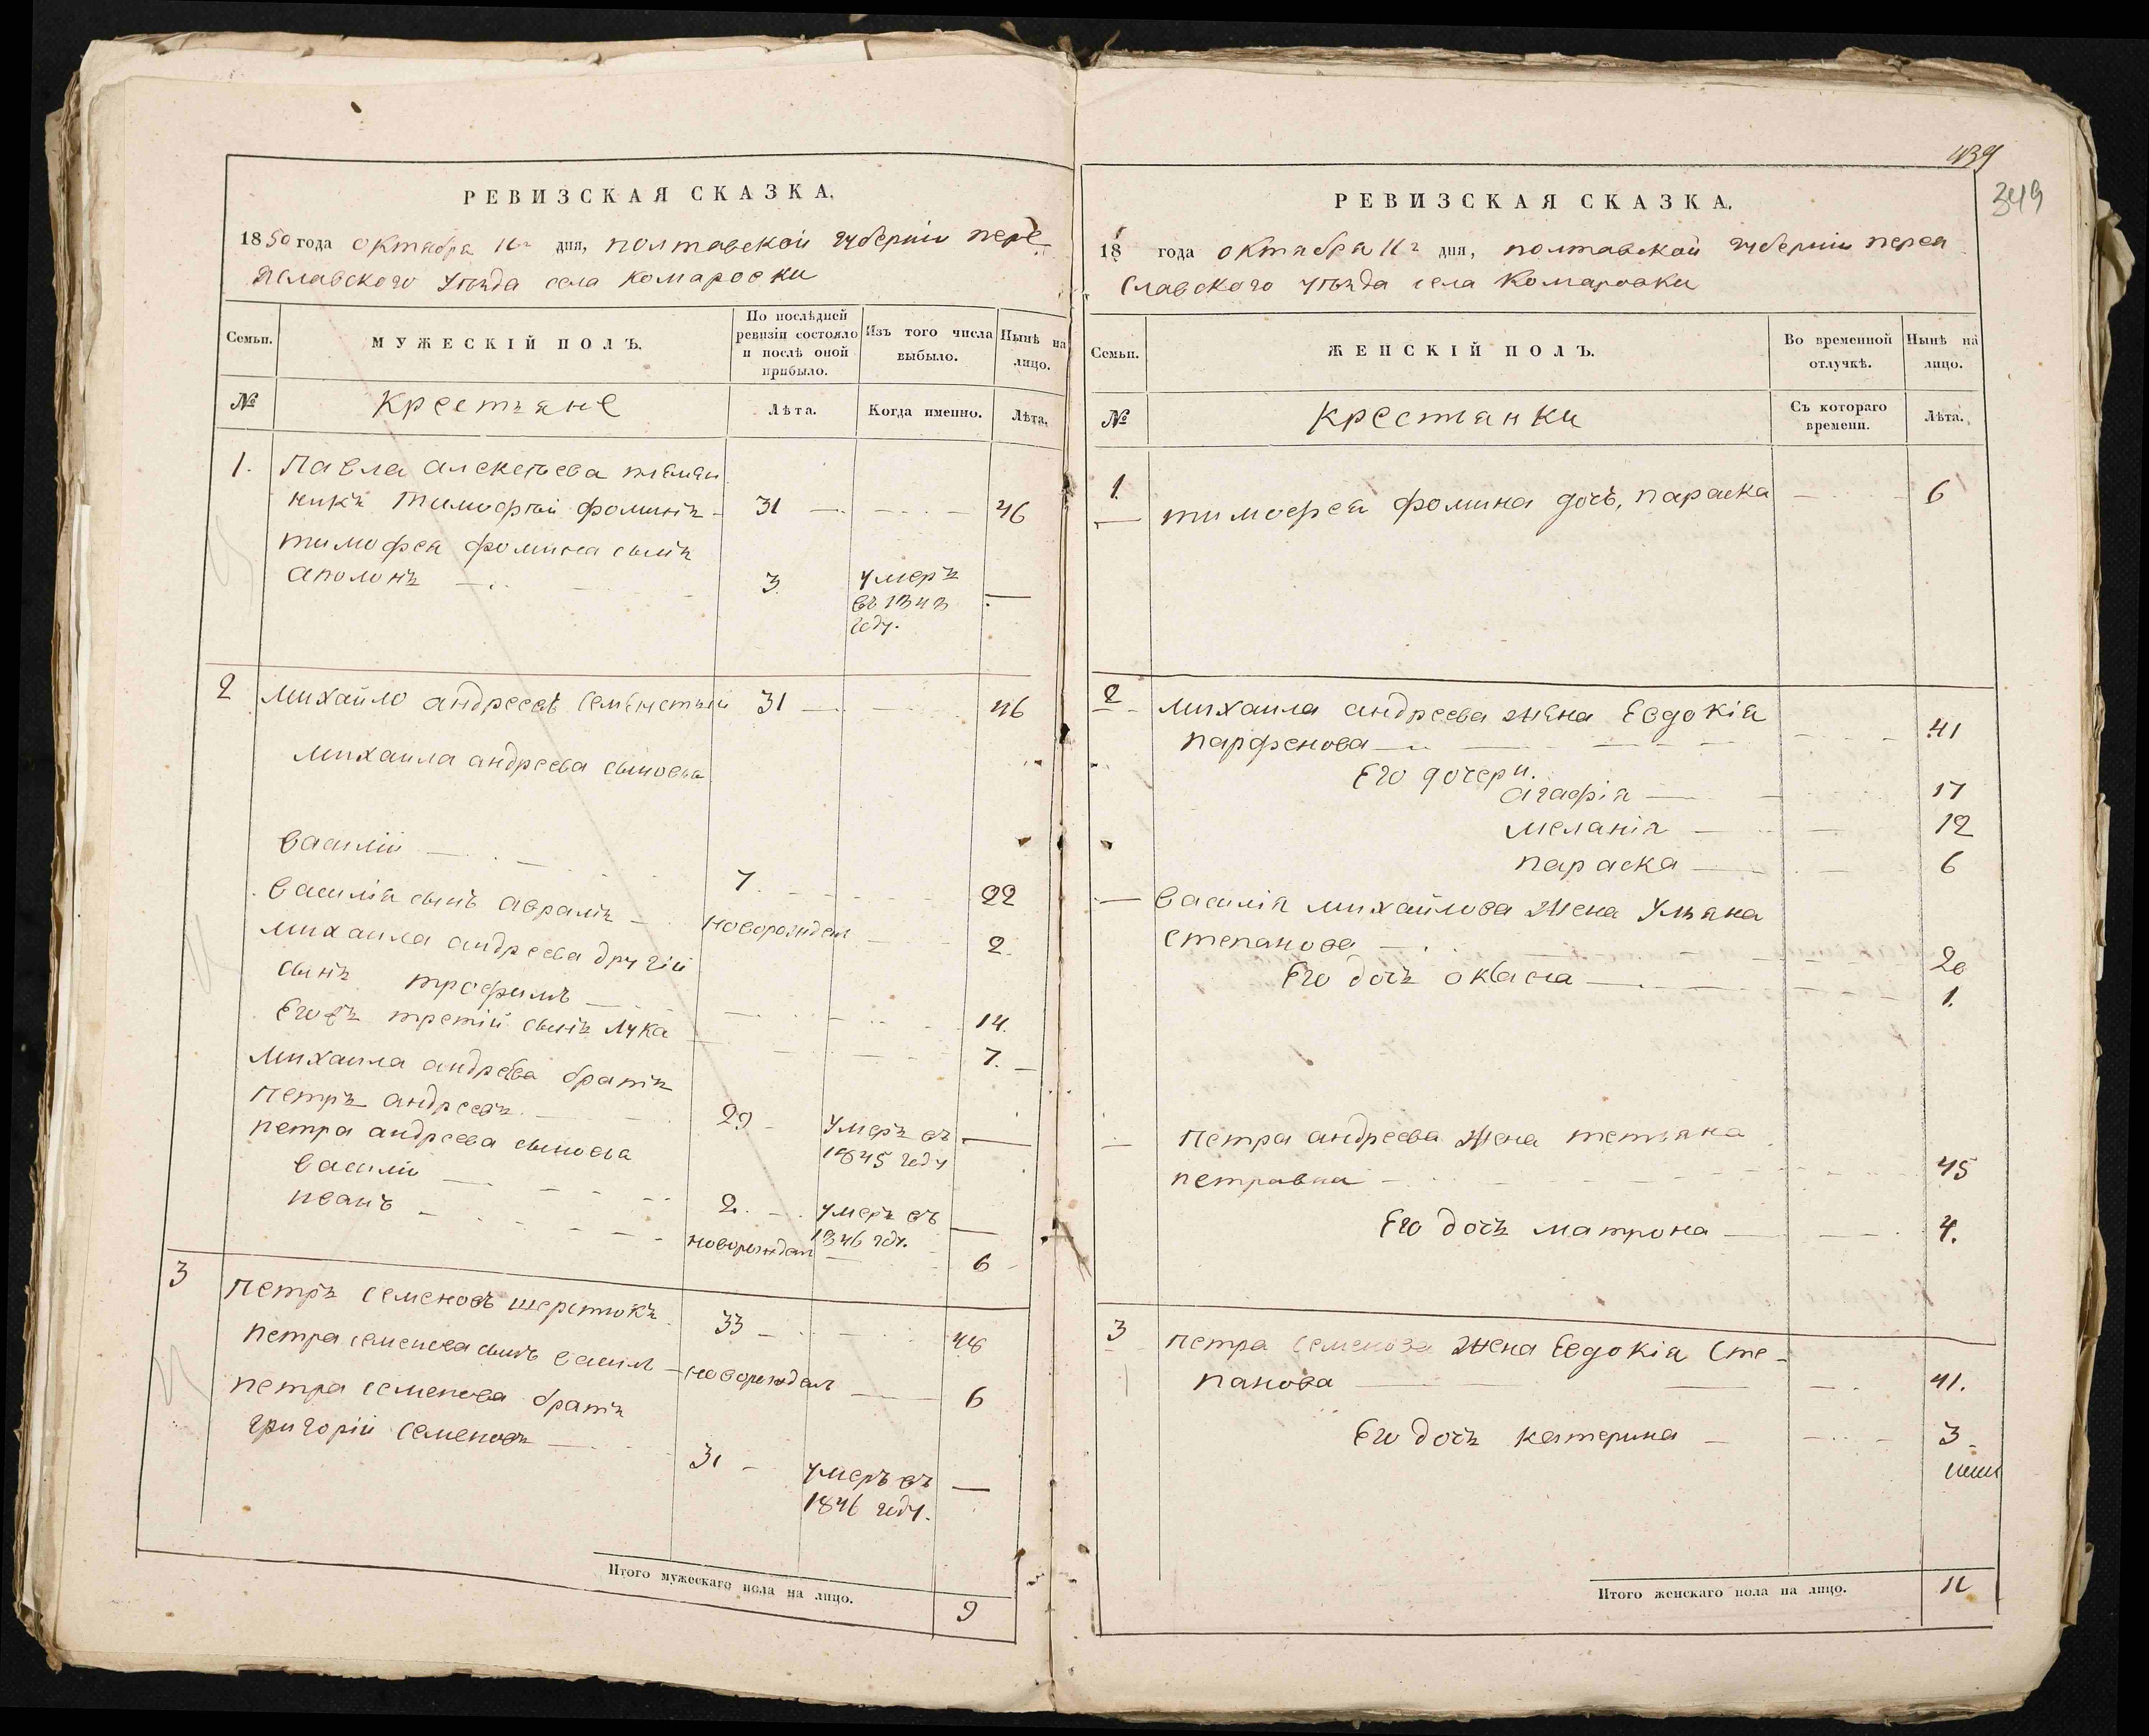 РЕВИЗСКАЯ СКАЗКА.
1850 года октября 11го дня, полтавской губерніи пере-
яславского уѣзда села Комаровки
Семьи.
МУЖЕСКІЙ ПОЛЪ.
По послѣдней ревизіи состояло и послѣ оной прибыло.
Изъ того числа выбыло.
Нынѣ на лицо.
№
Крестьяне
Лѣта.
Когда именно.
Лѣта.
1. Павла алексѣева племян
никъ Тимофѣй фоминъ 31 46
тимофея фомина сынъ
аполонъ 3. умеръ
въ 1843
году.
2 михайло андреевъ 31 46
михаила андреева сыновья
василій 7. 22
василія сынъ аврамъ новорожден 2.
михаила андреева другій
сынъ трофимъ 14.
Егожъ третій сынъ лука 7.
михаила андреева братъ
петръ андреевъ. 29 умеръ въ
1845 году
петра андреева сыновья
василій 2. умеръ въ
1846 году.
иванъ новорожден 6
3 петръ семеновъ шереметюкъ 33 48
петра семенова сынъ васил новорожден 6
петра семенова братъ
григорій семеновъ 31 умеръ въ
1846 году.
Итого мужескаго пола на лицо. 9
439
349
РЕВИЗСКАЯ СКАЗКА.
18 года октября 11го дня, полтавской губерніи перея
славского уѣзда села Комаровки
Семьи.
ЖЕНСКІЙ ПОЛЪ.
Во временной отлучкѣ.
Нынѣ на лицо.
№
крестянки
Съ котораго времени.
Лѣта.
1. тимофея фомина дочь, параска 6
2 михаила андреева жена Евдокія
парфенова 41
Его дочери.
агафія 17
меланія 12
параска 6
василія михайлова жена Ульяна
степанова 20
Его дочъ оксана 1.
петра андреева жена тетьяна
петравна 45
Его дочъ матрона 4.
3 петра семенова жена Евдокія Сте-
панова 41.
Его дочъ катерина 3
Итого женскаго пола на лицо. 11